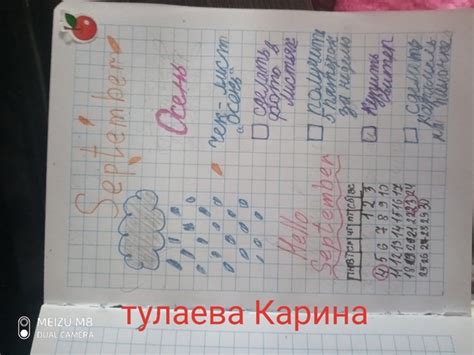 September
Осень
чек-лист
"Осень"
сделать
фото с
листьями
получить
5 пятёрок
за неделю
купить
сделать
Hello
September
пн вт ср чт пт сб вс
1 2 3
4 5 6 7 8 9 10
11 12 13 14 15 16 17
18 19 20 21 22 23 24
25 26 27 28 29 30
тулаева Карина
MEIZU M8
DUAL CAMERA